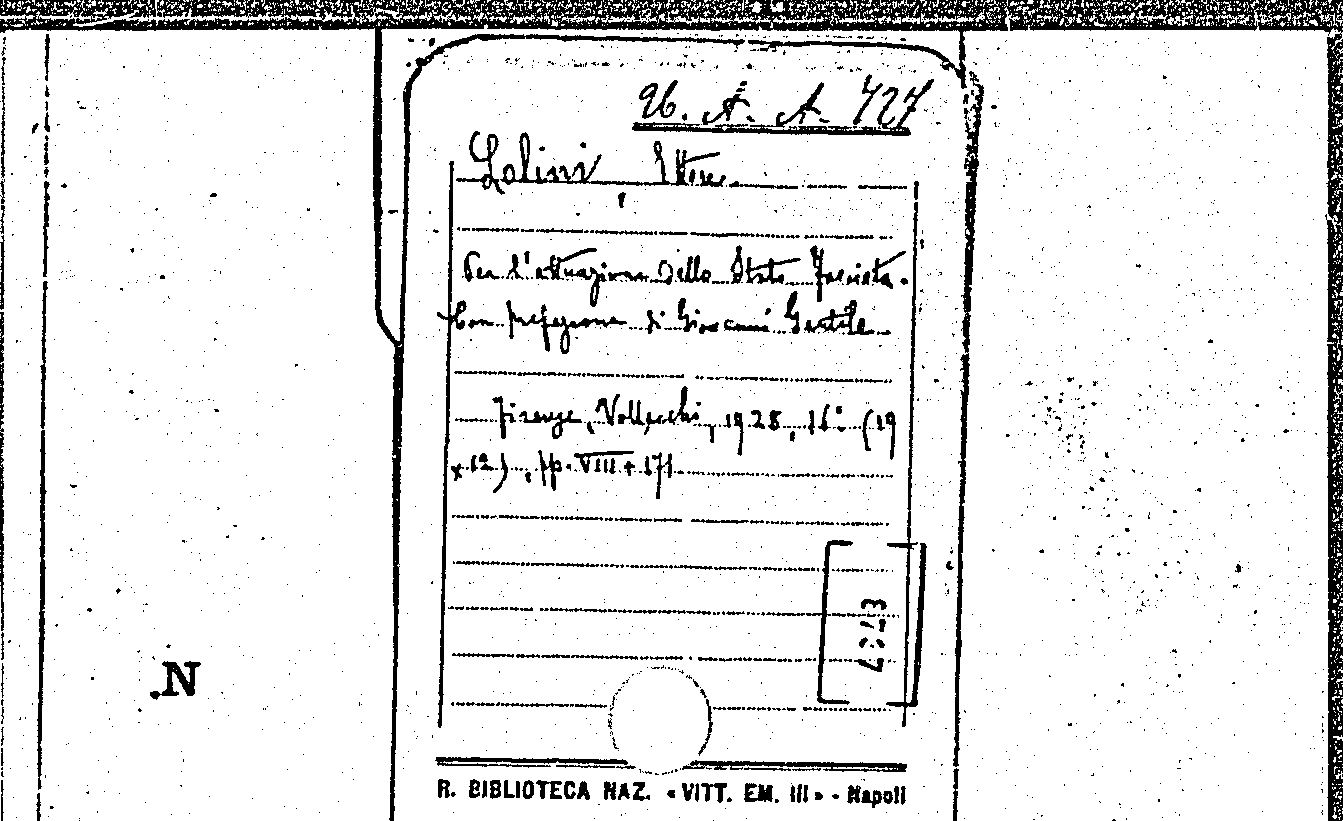 A. A. 727
Lolini, Ettore.
Per l'attuazione dello Stato Fascista.
Con prefazione di Giovanni Gentile
Firenze, Vallecchi, 1928, 16° (19
x 12), pp. VIII + 171
N
R. BIBLIOTECA NAZ. «VITT. EM. III» - Napoli